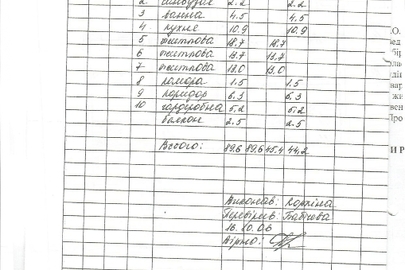 2 санвузол 2.2 2.2
3 ванна 4.5 4.5
4 кухня 10.9 10.9
5 житлова 18.7 18.7
6 житлова 13.7 13.7
7 житлова 13.0 13.0
8 комора 1.5 1.5
9 коридор 6.3 6.3
10 гардеробна 5.2 5.2
балкон 2.5 2.5
Всього: 89.6 89.6 45.4 44.2
Виконав:
Перевірив:
16.10.06
Вірно: